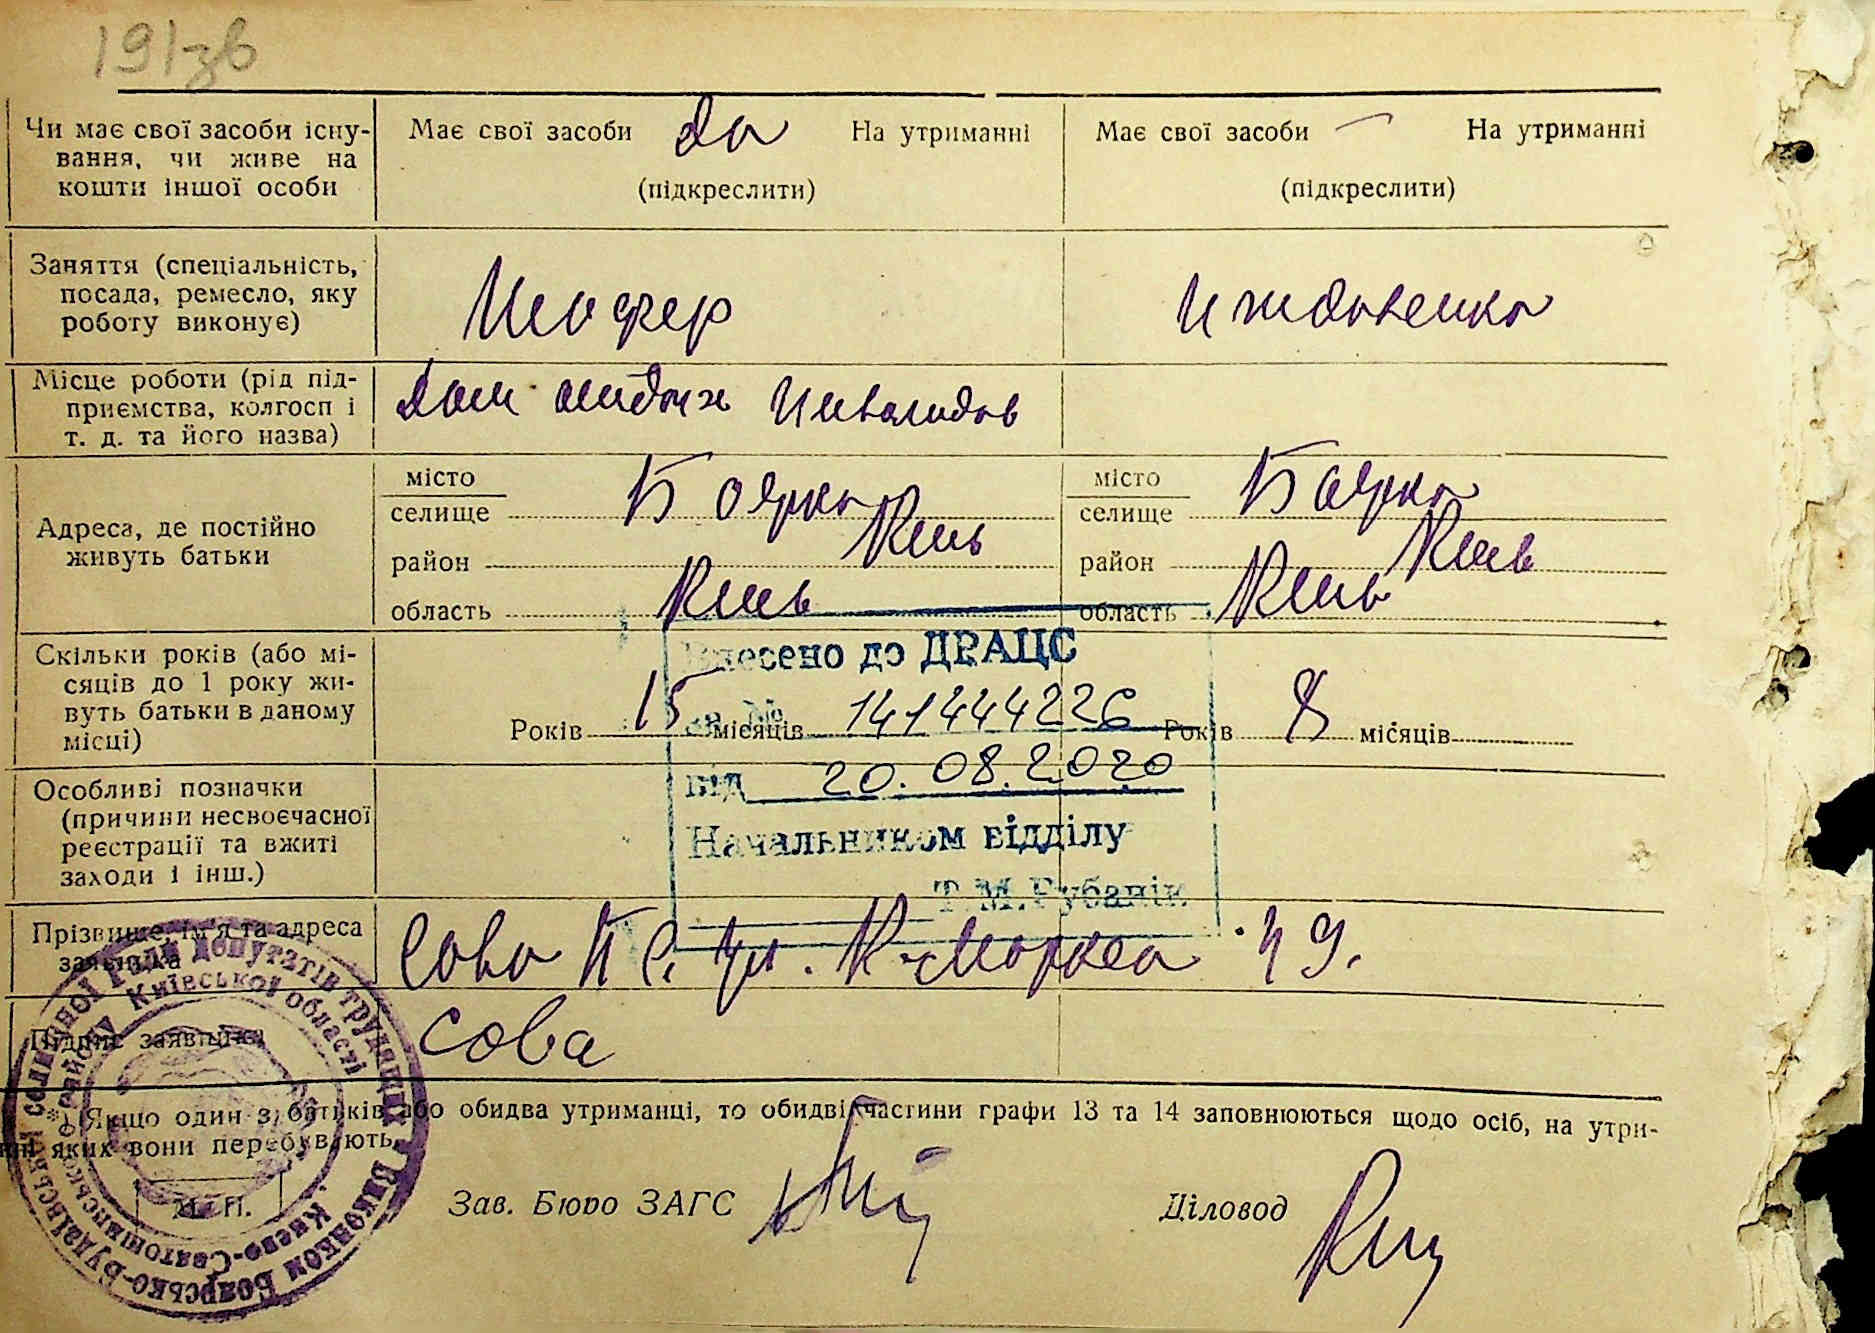 191зв
Чи має свої засоби існу-
вання, чи живе на
кошти іншої особи
Має свої засоби да На утриманні
(підкреслити)
Має свої засоби — На утриманні
(підкреслити)
Заняття (спеціальність,
посада, ремесло, яку
роботу виконує)
Шофер
Иждивенка
Місце роботи (рід під-
приємства, колгосп і
т. д. та його назва)
Дом отдыха Инвалидов
Адреса, де постійно
живуть батьки
місто
селище Боярка
район Киев
область Киев
місто
селище Боярка
район Киев
область Киев
Скільки років (або мі-
сяців до 1 року жи-
вуть батьки в даному
місці)
Років 15 місяців
Років 8 місяців
Внесено до ДРАЦС
за № 141444226
від 20.08.2020
Начальником відділу
Т.М.Рубанік
Особливі позначки
(причини несвоєчасної
реєстрації та вжиті
заходи і інш.)
Прізвище, ім'я та адреса
заявника
Сова П С. ул. К-Маркса 49.
Підпис заявника
Сова
*) Якщо один з батьків або обидва утриманці, то обидві частини графи 13 та 14 заповнюються щодо осіб, на утри-
нні яких вони перебувають.
М. П.
Зав. Бюро ЗАГС
Діловод
Виконком Боярсько-Будаївської селищної Ради депутатів трудящих
Києво-Святошинського району Київської області